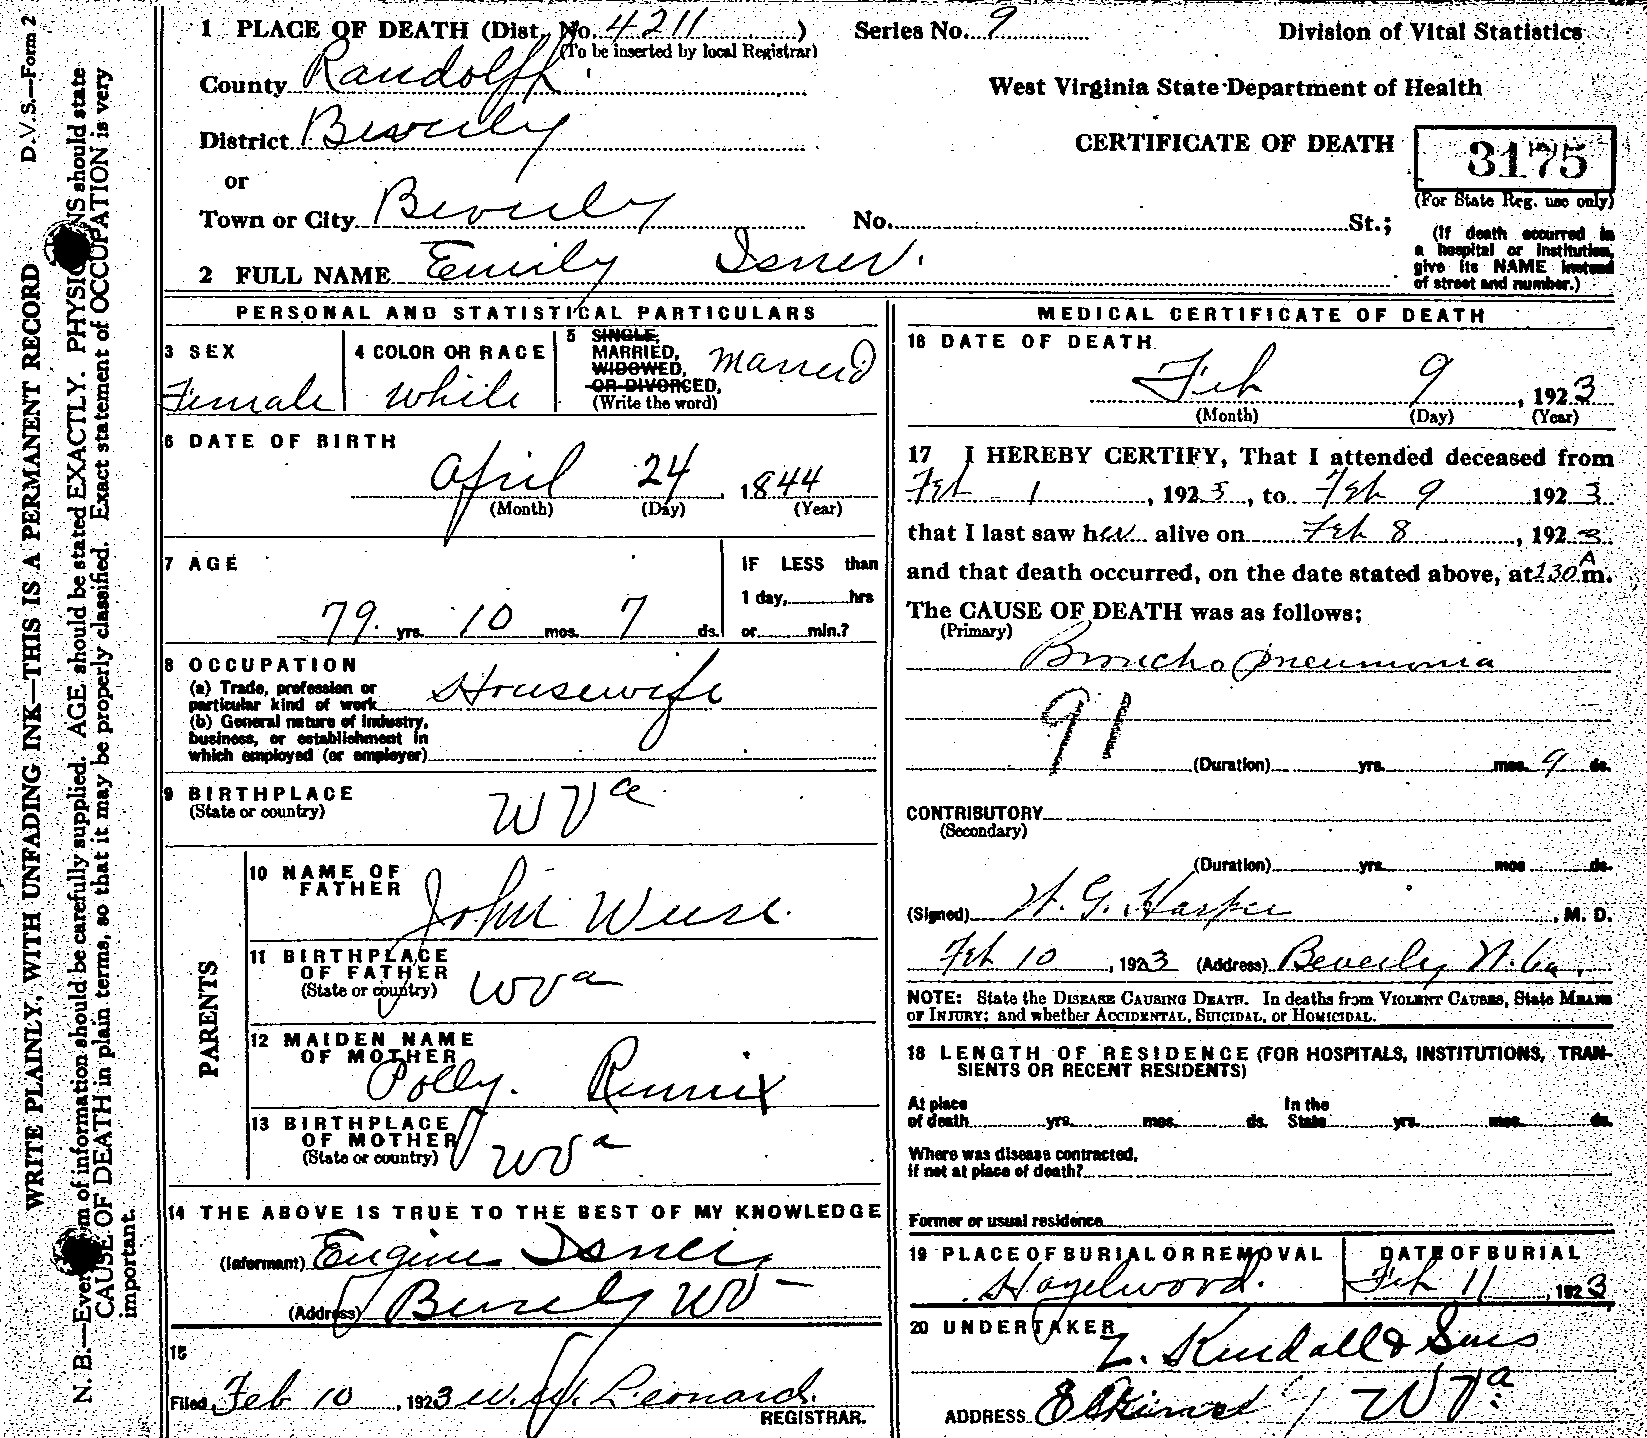 D.V.S.—Form 2
WRITE PLAINLY, WITH UNFADING INK—THIS IS A PERMANENT RECORD
N. B.—Every item of information should be carefully supplied. AGE should be stated EXACTLY. PHYSICIANS should state
CAUSE OF DEATH in plain terms, so that it may be properly classified. Exact statement of OCCUPATION is very
important.
1 PLACE OF DEATH (Dist. No. 4211 ) Series No. 9 Division of Vital Statistics
(To be inserted by local Registrar)
County Randolph West Virginia State Department of Health
District Beverly CERTIFICATE OF DEATH 3175
or (For State Reg. use only)
Town or City Beverly No. St.;
(If death occurred in
a hospital or institution,
give its NAME instead
of street and number.)
2 FULL NAME Emily Isner.
PERSONAL AND STATISTICAL PARTICULARS
3 SEX Female
4 COLOR OR RACE White
5 SINGLE, MARRIED, WIDOWED, OR DIVORCED, (Write the word) Married
6 DATE OF BIRTH
April 24, 1844
(Month) (Day) (Year)
7 AGE
79. yrs. 10 mos. 7 ds.
IF LESS than
1 day, hrs
or min.?
8 OCCUPATION
(a) Trade, profession or
particular kind of work Housewife
(b) General nature of industry,
business, or establishment in
which employed (or employer)
9 BIRTHPLACE
(State or country) W Va
PARENTS
10 NAME OF
FATHER John Weese.
11 BIRTHPLACE
OF FATHER
(State or country) W Va
12 MAIDEN NAME
OF MOTHER
Polly.
13 BIRTHPLACE
OF MOTHER
(State or country) W Va
14 THE ABOVE IS TRUE TO THE BEST OF MY KNOWLEDGE
(Informant) Eugine Isner
(Address) Beverly WV
15
Filed Feb 10, 1923 Leonard.
REGISTRAR.
MEDICAL CERTIFICATE OF DEATH
16 DATE OF DEATH
Feb 9, 1923
(Month) (Day) (Year)
17 I HEREBY CERTIFY, That I attended deceased from
Feb 1, 1923, to Feb 9 1923
that I last saw her alive on Feb 8, 1923
and that death occurred, on the date stated above, at 130 A m.
The CAUSE OF DEATH was as follows;
(Primary)
Broncho pneumonia
91
(Duration) yrs. mos. 9 ds.
CONTRIBUTORY
(Secondary)
(Duration) yrs. mos ds.
(Signed) Harper, M. D.
Feb 10, 1923 (Address) Beverly
NOTE: State the DISEASE CAUSING DEATH. In deaths from VIOLENT CAUSES, State MEANS
OF INJURY; and whether ACCIDENTAL, SUICIDAL, or HOMICIDAL.
18 LENGTH OF RESIDENCE (FOR HOSPITALS, INSTITUTIONS, TRAN-
SIENTS OR RECENT RESIDENTS)
At place
of death yrs. mos. ds.
In the
State yrs. mos. ds.
Where was disease contracted,
if not at place of death?
Former or usual residence
19 PLACE OF BURIAL OR REMOVAL DATE OF BURIAL
Hazelwood. Feb 11, 1923
20 UNDERTAKER
Kendall & Sons
ADDRESS Elkins W Va.